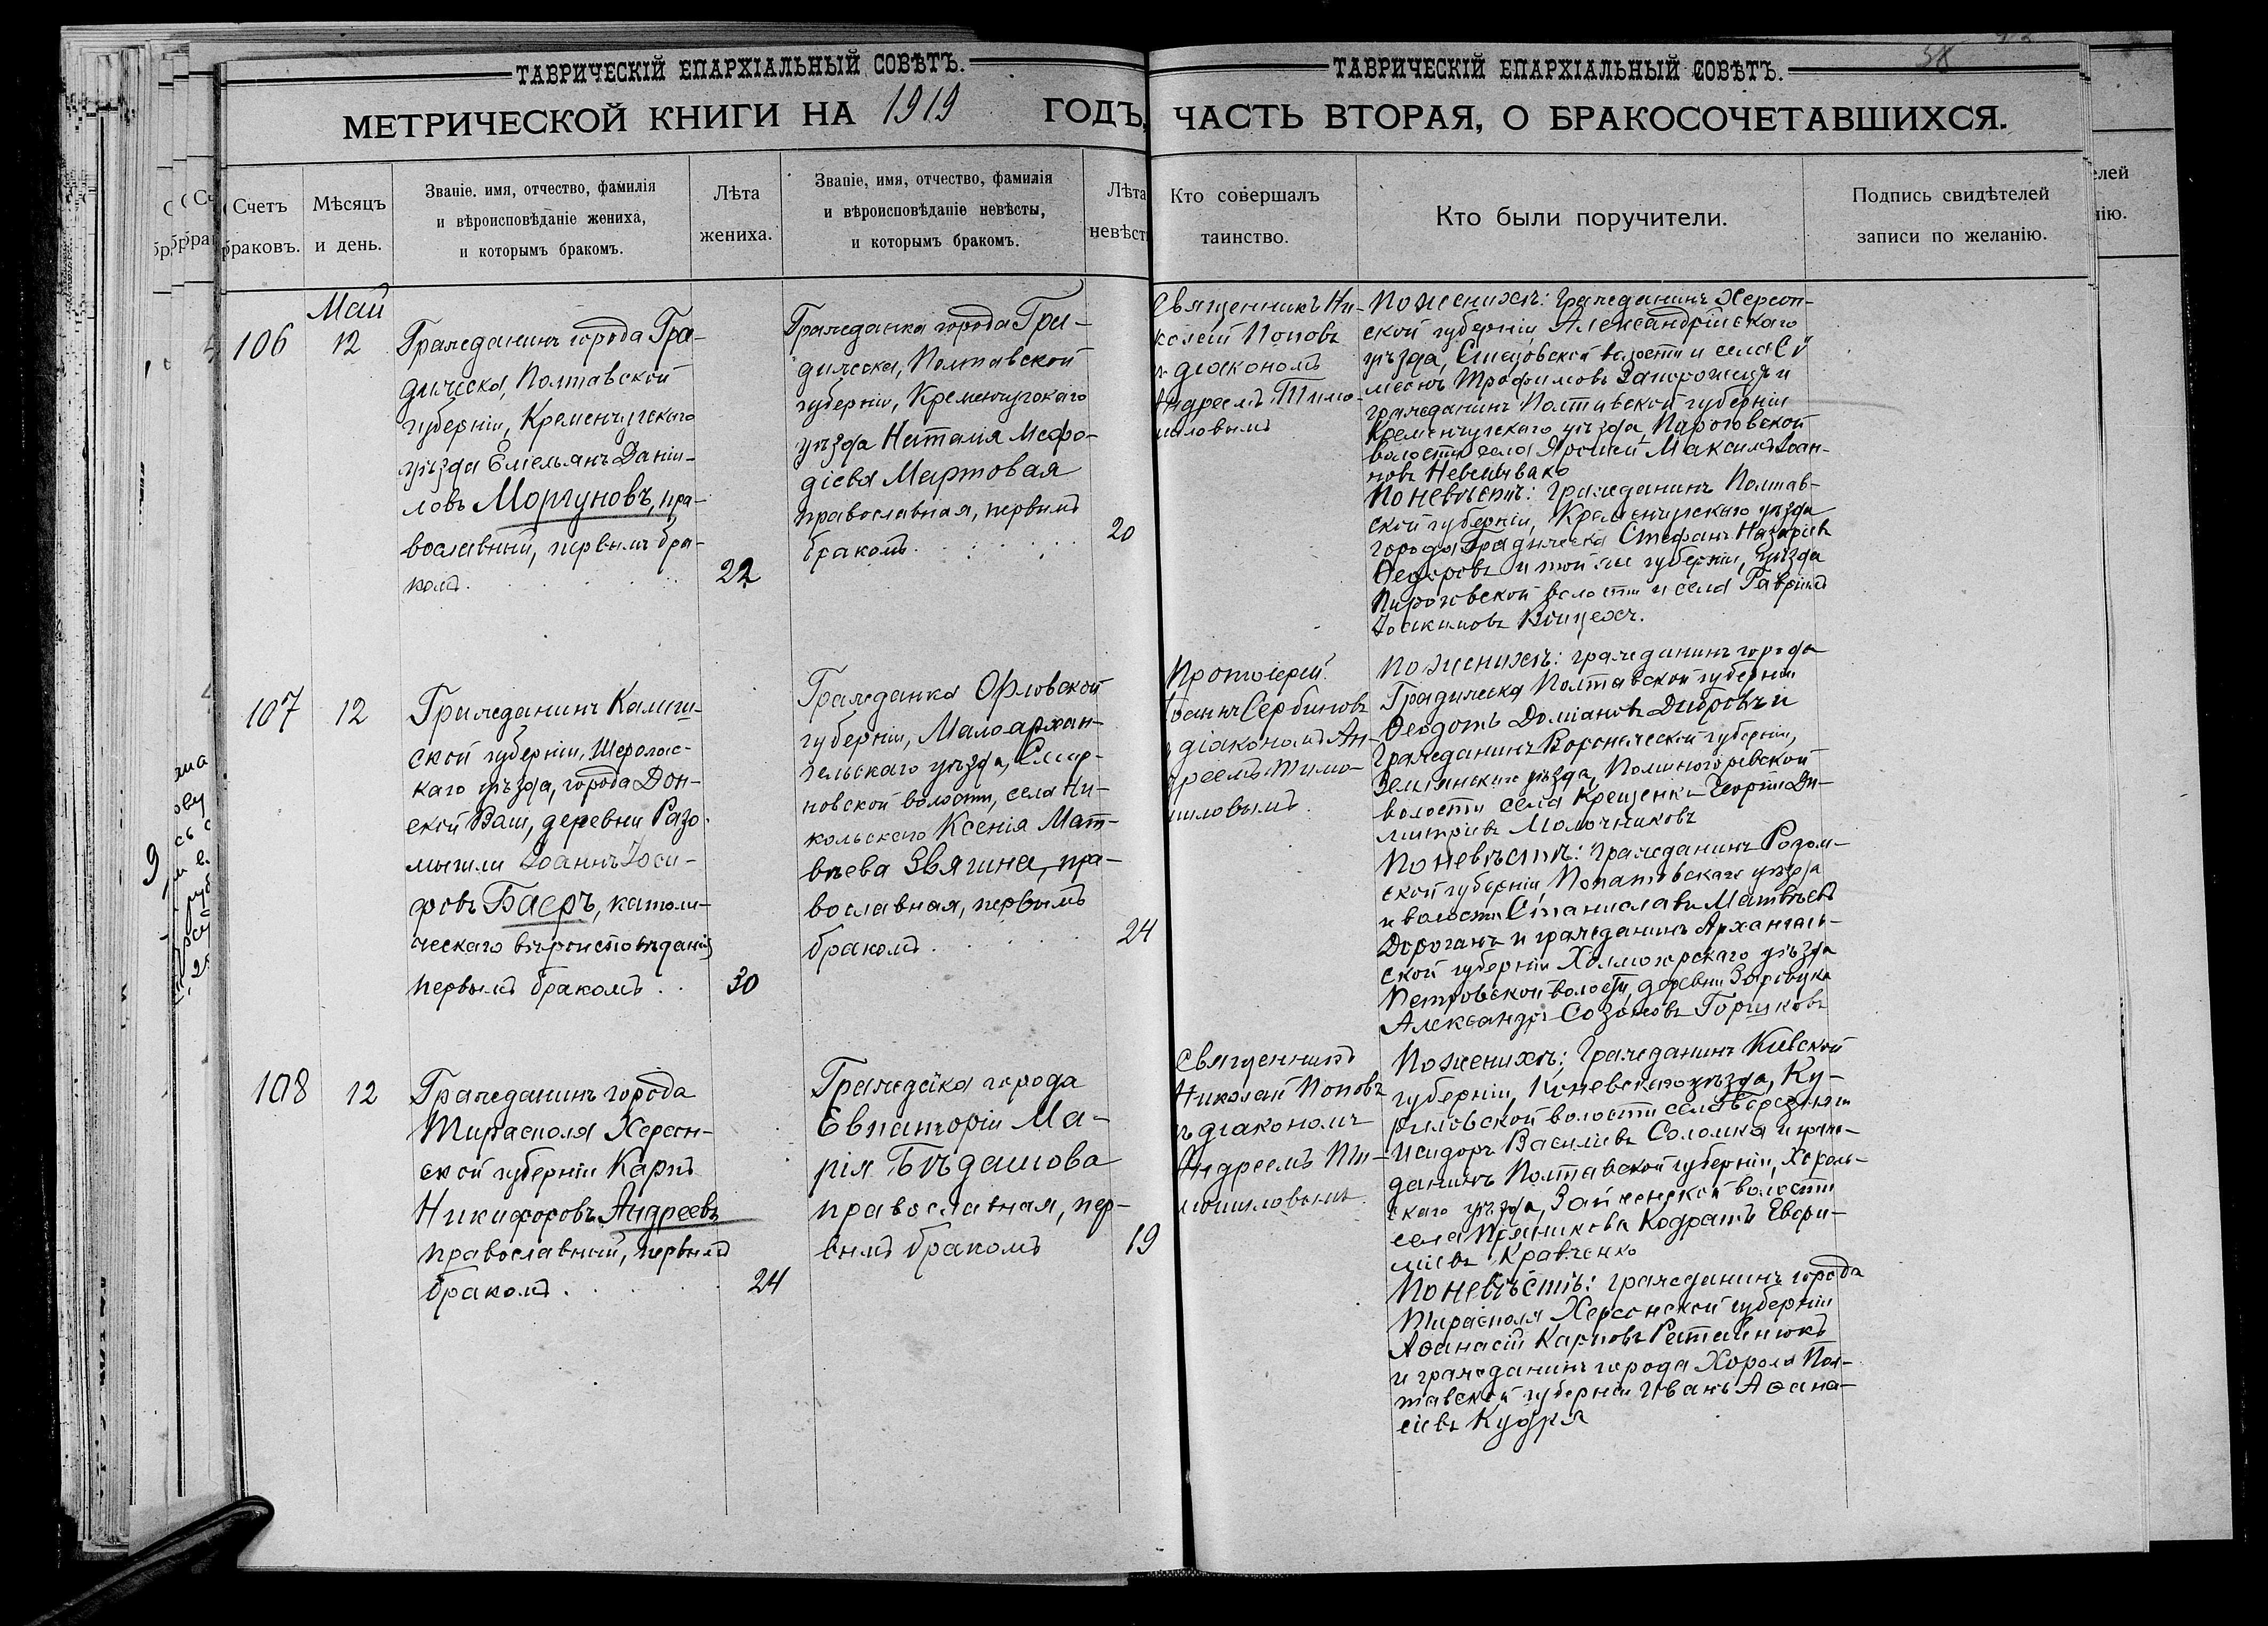 ТАВРИЧЕСКІЙ ЕПАРХІАЛЬНЫЙ СОВѢТЪ.
МЕТРИЧЕСКОЙ КНИГИ НА 1919 ГОДЪ,
Счетъ браковъ.
Мѣсяцъ и день.
Званіе, имя, отчество, фамилія
и вѣроисповѣданіе жениха,
и которымъ бракомъ.
Лѣта
жениха.
Званіе, имя, отчество, фамилія
и вѣроисповѣданіе невѣсты,
и которымъ бракомъ.
Лѣта
невѣст
ТАВРИЧЕСКІЙ ЕПАРХІАЛЬНЫЙ СОВѢТЪ.
58
ЧАСТЬ ВТОРАЯ, О БРАКОСОЧЕТАВШИХСЯ.
Кто совершалъ
таинство.
Кто были поручители.
Подпись свидѣтелей
записи по желанію.
106
Май
12
Гражданинъ города Гра-
дижска, Полтавской
губерніи, Кременчугскаго
уѣзда Емельянъ Даніи-
ловъ Моргуновъ, пра-
вославный, первымъ бра-
комъ.
22
Гражданка города Гра-
дижска, Полтавской
губерніи, Кременчугскаго
уѣзда Наталія Мефо-
діева Мартовая
православная, первымъ
бракомъ.
20
Священникъ Ни-
колай Поповъ
діакономъ
Андреемъ Тимо-
шиловымъ
По женихѣ: Гражданинъ Херсон-
ской губерніи Александрійскаго
уѣзда, волости и села Си
меонъ Трофимовъ Запорожецъ и
гражданинъ Полтавской губерніи
Кременчугскаго уѣзда,
волости села Максимъ Іоан-
новъ
По невѣстѣ: Гражданинъ Полтав-
ской губерніи, Кременчугскаго уѣзда
города Градижска Стефанъ Назаріевъ
Федоровъ и той же губерніи, уѣзда
волости и села Гавріилъ
Іоакимовъ
107
12
Гражданинъ Калиш-
ской губерніи,
каго уѣзда, города Дон-
ской Ваш, деревни Разо-
мышли Іоаннъ Іоси-
фовъ Баеръ, католи-
ческаго вѣроисповѣданія
первымъ бракомъ.
30
Гражданка Орловской
губерніи, Малоархан-
гельскаго уѣзда, Смир-
новской волости, села Ни-
кольскаго Ксенія Мат-
вѣева Звягина, пра-
вославная, первымъ
бракомъ.
24
Протоіерей
Іоаннъ Сербиновъ
діакономъ Ан-
дреемъ Тимо-
шиловымъ.
По женихѣ: гражданинъ города
Градижска Полтавской губерніи
Феодотъ Доміановъ и
Гражданинъ Воронежской губерніи,
Землянскаго уѣзда,
волости села Георгій Ди-
митріевъ Молочниковъ
По невѣстѣ: Гражданинъ Радом-
ской губерніи, уѣзда
и волости Станиславъ Матвѣевъ
и гражданинъ Архангель-
ской губерніи Холмогорскаго уѣзда
Петровской волости, деревни
Александръ Созоновъ Горшковъ
108
12
Гражданинъ города
Тирасполя Херсон-
ской губерніи Карпъ
Никифоровъ Андреевъ
православный, первымъ
бракомъ.
24
Гражданка города
Евпаторіи Ма-
рія Бѣдашова
православная, пер-
вымъ бракомъ
19
Священникъ
Николай Поповъ
съ діакономъ
Андреемъ Ти-
мошиловымъ.
По женихѣ: Гражданинъ Кіевской
губерніи, Каневскаго уѣзда, Ку-
риловской волости села
Исидоръ Василіевъ Соломка и граж-
данинъ Полтавской губерніи, Хороль-
скаго уѣзда, волости
села Кодратъ Евфи-
міевъ Кравченко
По невѣстѣ: гражданинъ города
Тирасполя, Херсонской губерніи
Аѳанасій Карповъ
и гражданинъ города Хорола Пол-
тавской губерніи Иванъ Аѳана-
сіевъ Кудря